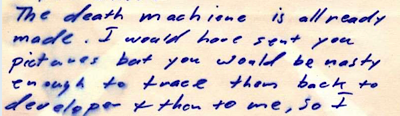 The death machiene is allready
made. I would have sent you
pictures but you would be nasty
enough to trace them back to
developer & then to me, so I